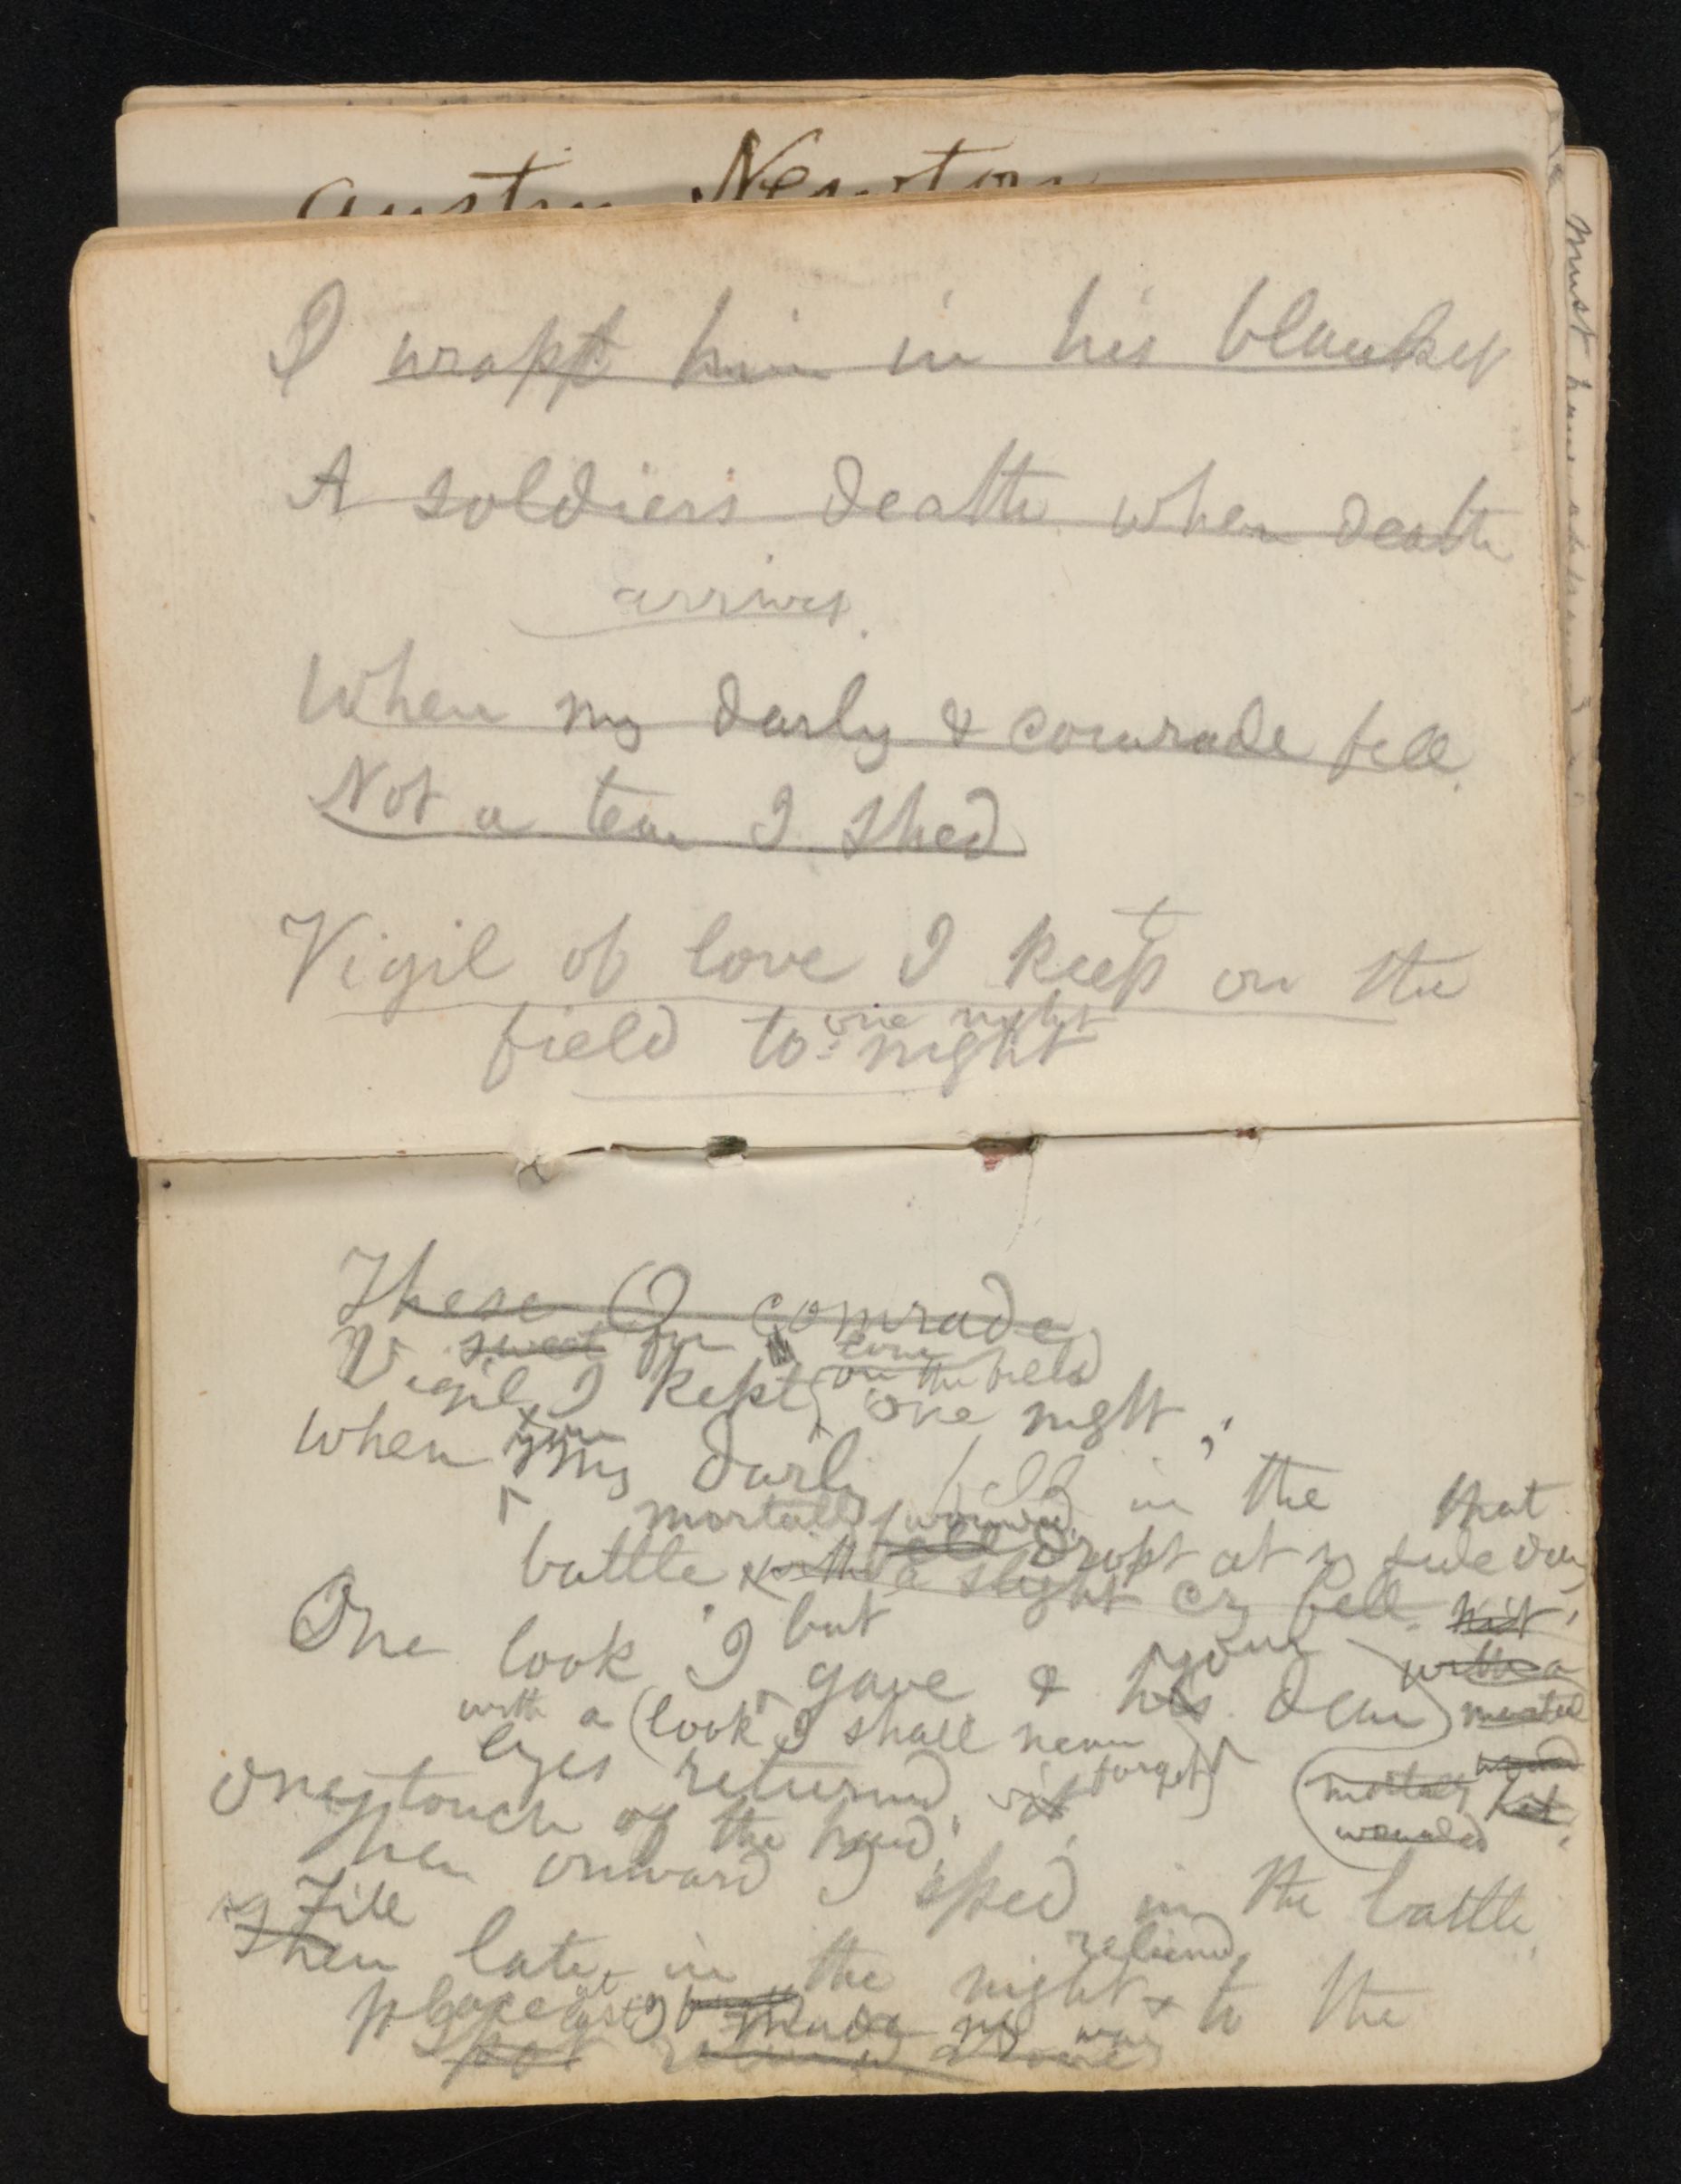 Austin Newton
I wrapt him in his blanket
A soldier's death when death
arrives
When my darling & comrade fell
Not a tear I shed
Vigil of love I keep t on the
one night
field to-night
must have
These O comrade
sweet for love
on the field
Vigil I kept one night,
When you my darling fell in the that
mortally wounded
battle with a slight cry fell dropt at my side day
but hit,
One look I gave & his your dear with a
with a (look I shall never forget) mortal wound
eyes returned, (mortally wounded hit.
One touch of the hand,
Then onward I sped in the battle,
Till
Then late in the night relieved to the
place at last I made my way
spot